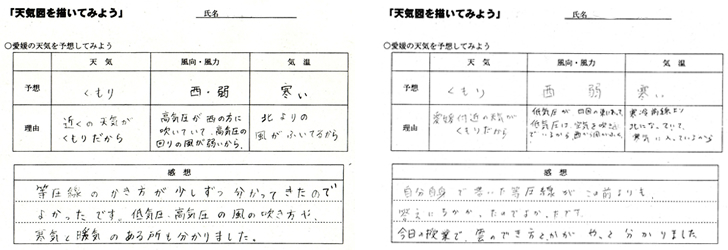 「天気図を描いてみよう」 氏名
○愛媛の天気を予想してみよう
天気 風向・風力 気温
予想 くもり 西・弱 寒い
理由
近くの天気が
くもりだから
高気圧が西の方に
吹いていて、高気圧の
回りの風が弱いから。
北よりの
風がふいてるから
感想
等圧線のかき方が少しずつ分かってきたので
よかったです。低気圧、高気圧の風の吹き方や、
寒気と暖気のある所も分かりました。
「天気図を描いてみよう」 氏名
○愛媛の天気を予想してみよう
天気 風向・風力 気温
予想 くもり 西 弱 寒い
理由
愛媛付近の天気が
くもりだから
低気圧が
低気圧は、空気を
寒冷前線より
北になっていて、
寒気に入っているから
感想
自分自身で書いた等圧線がこの前よりも、
答えにちかかったのでよかったです。
今日の授業で、雲のでき方とかがやっと分かりました